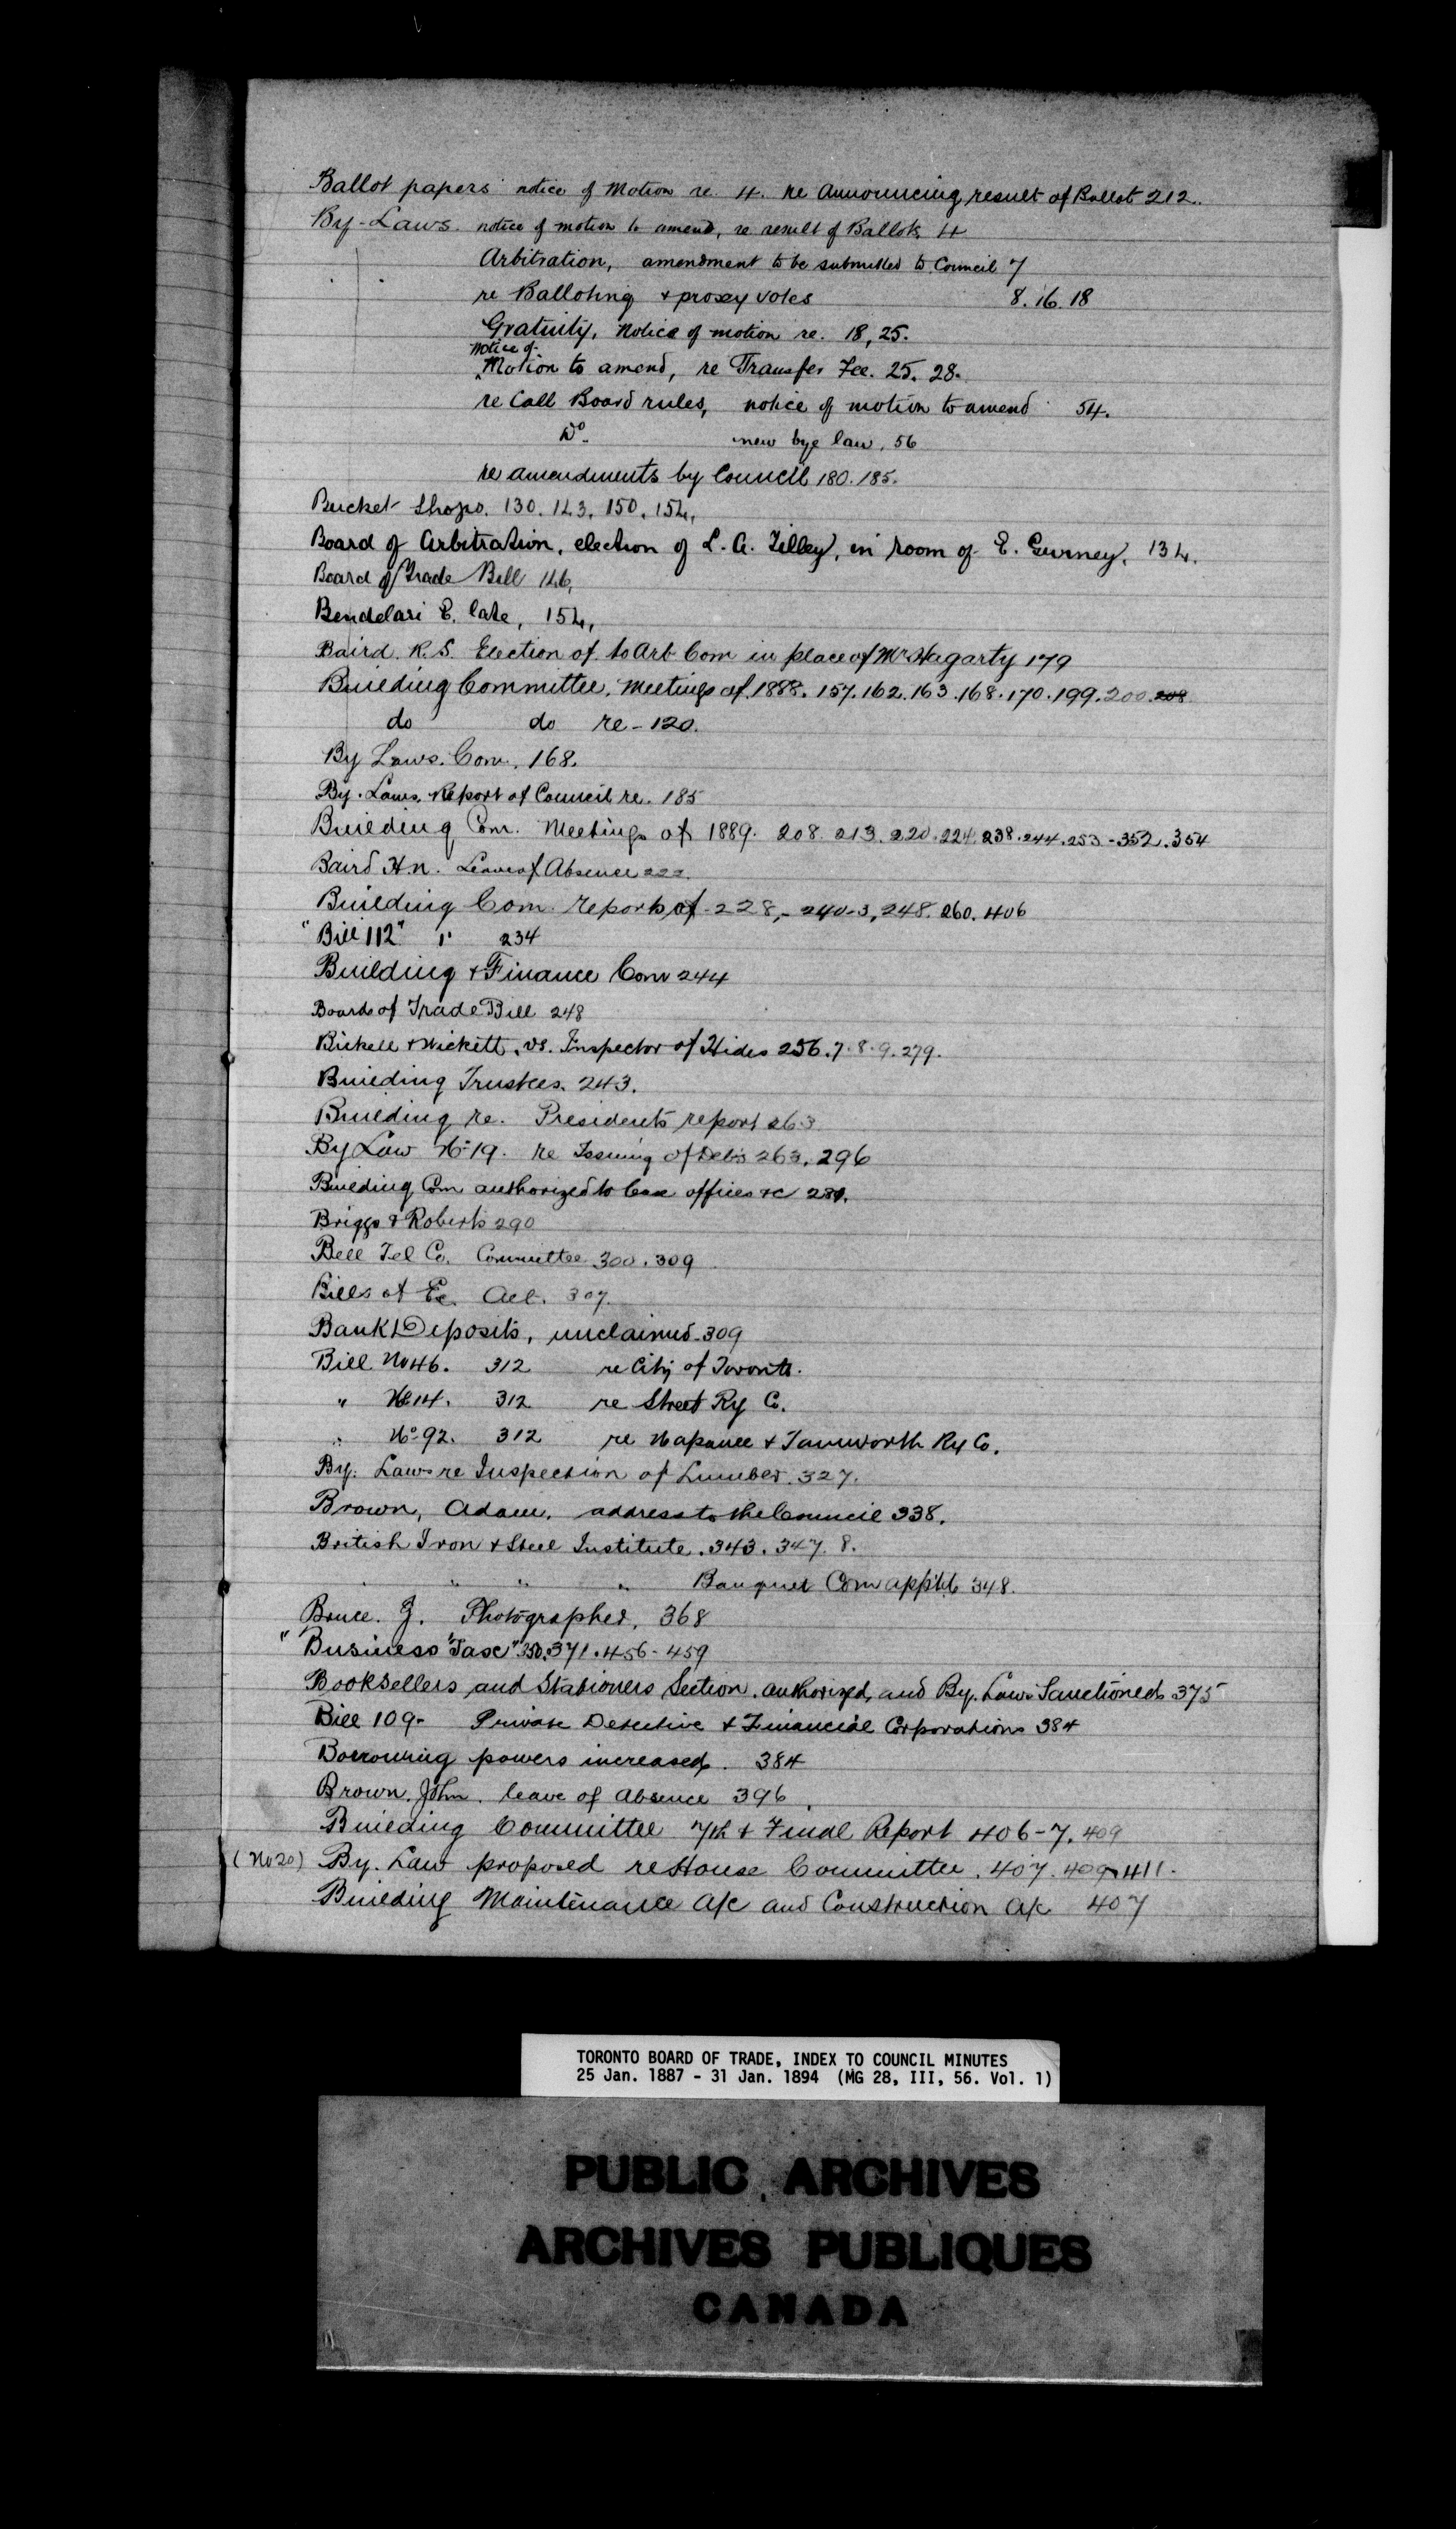 Ballot papers notice of Motion re 4. re Announcing result of Ballot 212.
By-Laws. notice of motion to amend, re result of Ballots, 4
Arbitration, amendment to be submitted to Council 7
re Balloting & proxy votes 8. 16. 18
Gratuity, Notice of motion re. 18, 25.
Notice of
Motion to amend, re Transfer Fee. 25. 28.
re Call Board rules, notice of motion to amend 54.
Do. new bye law, 56
re amendments by Council 180. 185.
Bucket Shops. 130. 143. 150. 154,
Board of Arbitration, election of L. A. Tilley, in room of E. Gurney. 134.
Board of Trade Bill 146,
Bendelari E. late, 154,
Baird. K. S. Election of to Arb Com in place of Mr Hagarty 179
Building Committee. Meetings of 1888. 157. 162. 163. 168. 170. 199. 200. 208
do do re - 120.
By Laws. Com. 168.
By. Laws. Report of Council re. 185
Building Com. Meetings of 1889. 208. 213. 220. 224. 238. 244. 253 - 352. 354
Baird H.N. Leave of Absence 222.
Building Com. reports of - 228, - 240-3, 248. 260. 406
"Bill 112" " 234
Building & Finance Com 244
Boards of Trade Bill 248
Bickell & Wickett. vs. Inspector of Hides 256. 7. 8. 9. 279.
Building Trustees. 243.
Building re. Presidents report 263
By Law No 19. re Issuing of Deb's 263. 296
Building Com authorized to lease offices &c 281.
Briggs & Roberts 290
Bell Tel Co. Committee 300. 309
Bills of Ex. Act. 307.
Bank Deposits, unclaimed - 309
Bill No 46. 312 re City of Toronto.
" No 14. 312 re Street Ry Co.
" No 92. 312 re Napanee & Tamworth Ry Co.
By. Laws re Inspection of Lumber. 327.
Brown, Adam. address to the Council 338.
British Iron & Steel Institute. 343. 347. 8.
" " " Banquet Com app'td 348.
Bruce. J. Photographer, 368
"Business Tax" 350. 371. 456 - 459
Booksellers and Stationers Section. authorized, and By. Laws Sanctioned 375
Bill 109 - Private Detective & Financial Corporations 384
Borrowing powers increased. 384
Brown. John. leave of absence 396
Building Committee 7th & Final Report 406 - 7. 409
(No 20) By. Law proposed re House Committee. 407. 409. 411.
Building Maintenance A/c and Construction A/c 407
TORONTO BOARD OF TRADE, INDEX TO COUNCIL MINUTES
25 Jan. 1887 - 31 Jan. 1894 (MG 28, III, 56. Vol. 1)
PUBLIC ARCHIVES
ARCHIVES PUBLIQUES
CANADA